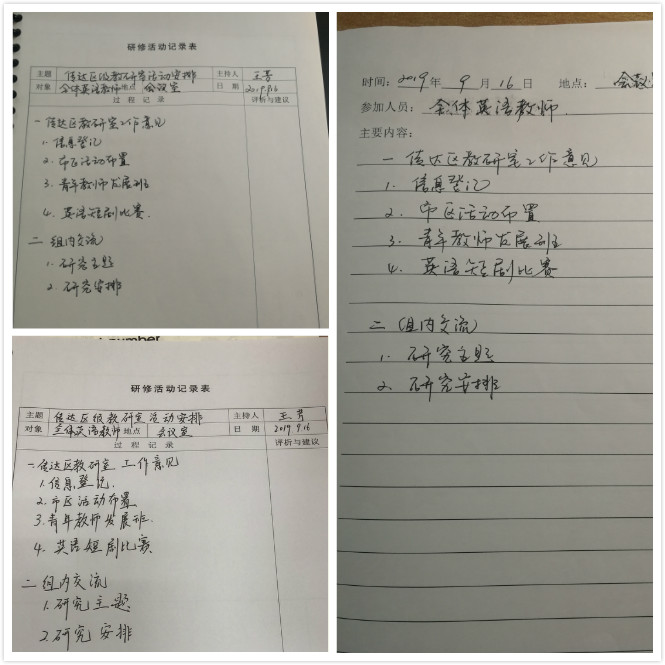 研修活动记录表
主题 传达区级教研室活动安排 主持人 王芳
对象 全体英语教师 地点 会议室 日期 2019.9.16
过程记录 评析与建议
一 传达区教研室工作意见
1. 信息登记
2. 市区活动布置
3. 青年教师发展班
4. 英语短剧比赛.
二 组内交流
1. 研究主题
2. 研究安排
number
研修活动记录表
主题 传达区级教研室活动安排 主持人 王芳
对象 全体英语教师 地点 会议室 日期 2019.9.16
过程记录 评析与建议
一 传达区教研室工作意见
1. 信息登记.
2. 市区活动布置
3. 青年教师发展班.
4. 英语短剧比赛
二 组内交流
1. 研究主题
2. 研究安排
时间: 2019年 9月 16日 地点: 会议
参加人员: 全体英语教师.
主要内容:
一 传达区教研室工作意见
1. 信息登记
2. 市区活动布置
3. 青年教师发展班
4. 英语短剧比赛
二 组内交流
1. 研究主题
2. 研究安排